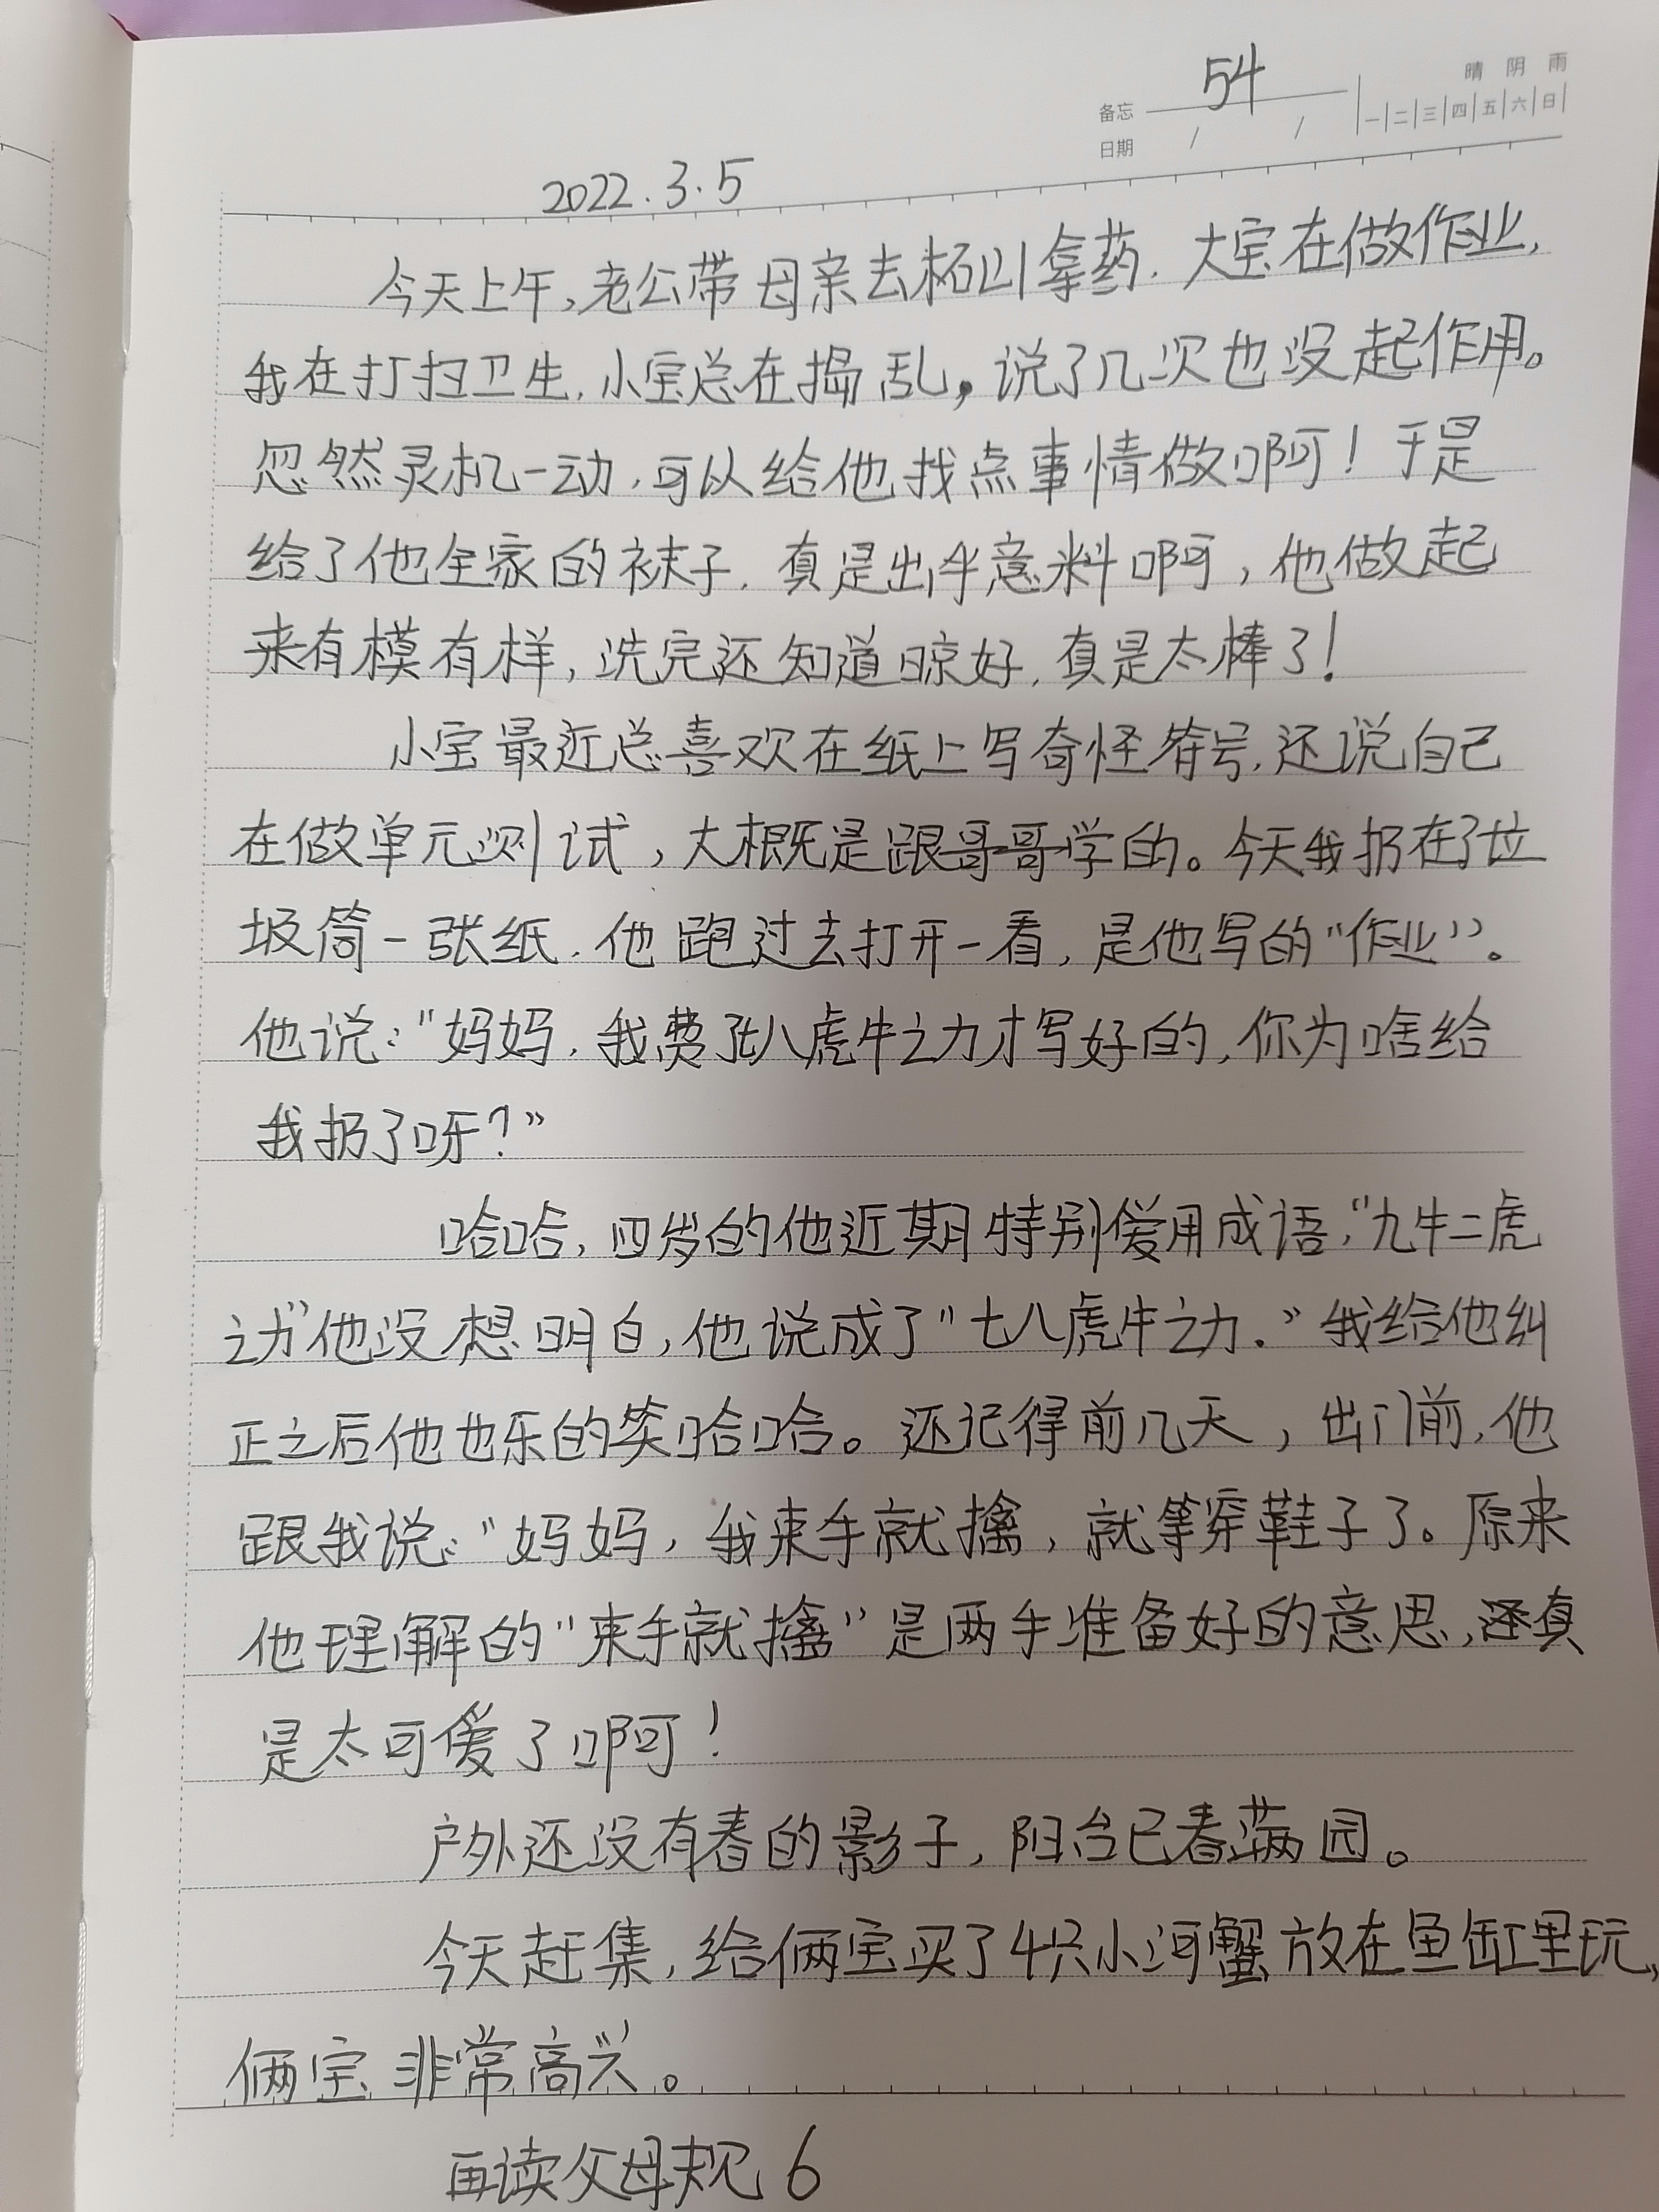 54
晴 阴 雨
备忘
一 二 三 四 五 六 日
日期 / /
2022.3.5
今天上午,老公带母亲去栖山拿药.大宝在做作业,
我在打扫卫生.小宝总在捣乱,说了几次也没起作用。
忽然灵机一动,可以给他找点事情做啊!于是
给了他全家的袜子.真是出乎意料啊,他做起
来有模有样,洗完还知道晾好,真是太棒了!
小宝最近总喜欢在纸上写奇怪符号,还说自己
在做单元测试,大概是跟哥哥学的。今天我扔在了垃
圾筒一张纸.他跑过去打开一看,是他写的“作业”。
他说:“妈妈,我费了七八虎牛之力才写好的,你为啥给
我扔了呀?”
哈哈,四岁的他近期特别爱用成语,“九牛二虎
之力”他没想明白,他说成了“七八虎牛之力.”我给他纠
正之后他也乐的笑哈哈。还记得前几天,出门前,他
跟我说:“妈妈,我束手就擒,就等穿鞋子了。原来
他理解的“束手就擒”是两手准备好的意思,还真
是太可爱了啊!
户外还没有春的影子,阳台已春满园。
今天赶集,给俩宝买了4只小河蟹放在鱼缸里玩,
俩宝非常高兴。
再读父母规6